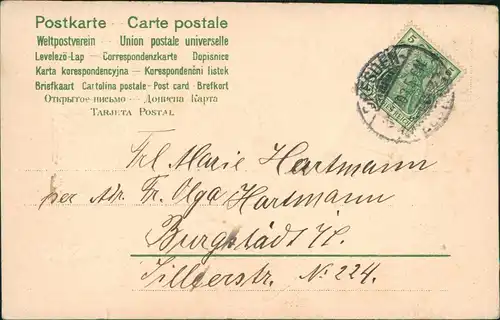 Postkarte - Carte postale
Weltpostverein - Union postale universelle
Levelezö-Lap - Correspondenzkarte Dopisnice
Karta korespondencyjna - Korespondenční listek
Briefkaart Cartolina postale - Post card - Brefkort
Открытое письмо - Дописна Карта
Tarjeta Postal
5 5
DRESDEN
Frl. Marie Hartmann
per Adr. Fr. Olga Hartmann
Burgstädt i/S.
Sillberstr. No 224.